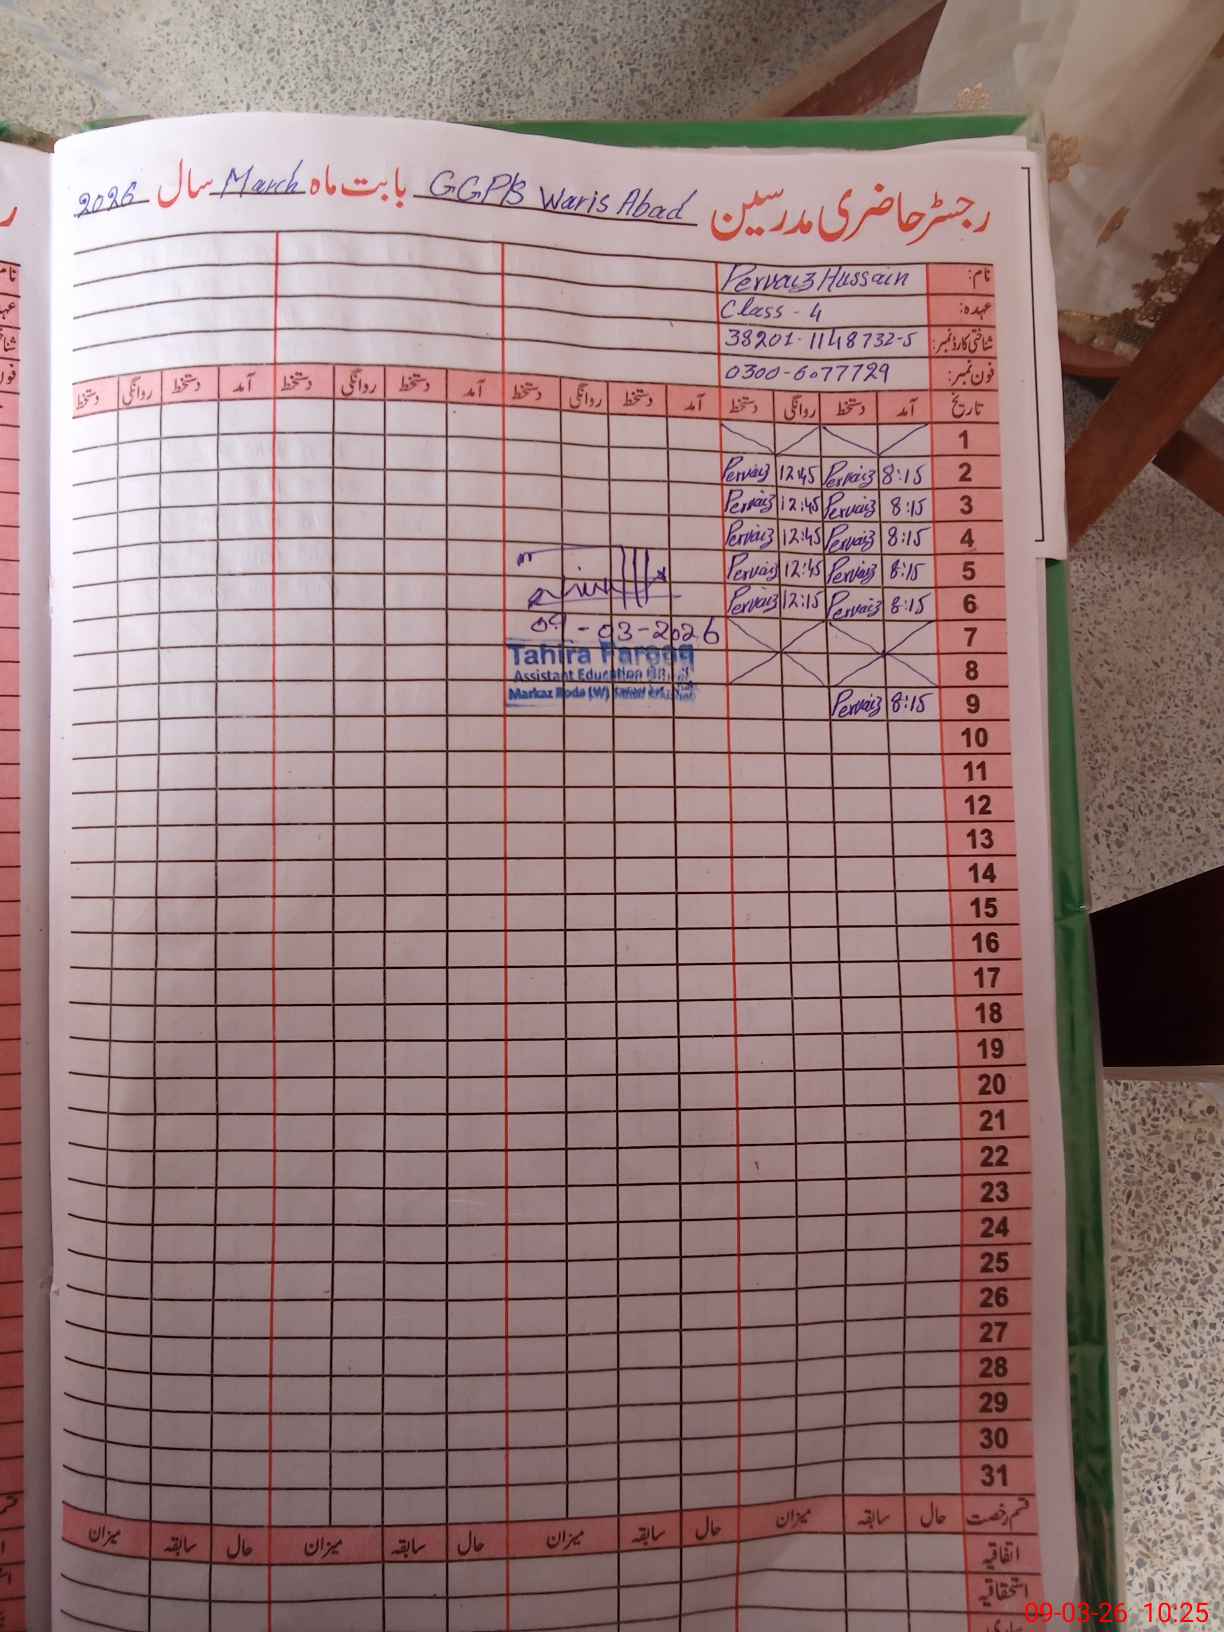 رجسٹر حاضری مدرسین GGP/S Waris Abad بابت ماہ March سال 2026
نام: Pervaiz Hussain
عہدہ: Class - 4
شناختی کارڈ نمبر: 38201-1148732-5
فون نمبر: 0300-6077729
تاریخ آمد دستخط روانگی دستخط آمد دستخط روانگی دستخط آمد دستخط روانگی دستخط آمد دستخط روانگی دستخط
1
2 8:15 Pervaiz 12:45 Pervaiz
3 8:15 Pervaiz 12:45 Pervaiz
4 8:15 Pervaiz 12:45 Pervaiz
5 8:15 Pervaiz 12:45 Pervaiz
6 8:15 Pervaiz 12:15 Pervaiz
09-03-2026
7
Tahira Farooq
8
Assistant Education
Markaz Roda (W)
9 8:15 Pervaiz
10
11
12
13
14
15
16
17
18
19
20
21
22
23
24
25
26
27
28
29
30
31
قسم رخصت حال سابقہ میزان حال سابقہ میزان حال سابقہ میزان حال سابقہ میزان
اتفاقیہ
استحقاقیہ
09-03-26 10:25